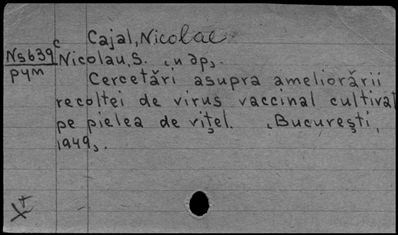 Cajal, Nicolae
Ns639 c Nicolau, S. , и др,.
рум Cercetări asupra ameliorării
recoltei de virus vaccinal cultivat
pe pielea de viţel. , Bucureşti,
1949,.
X+